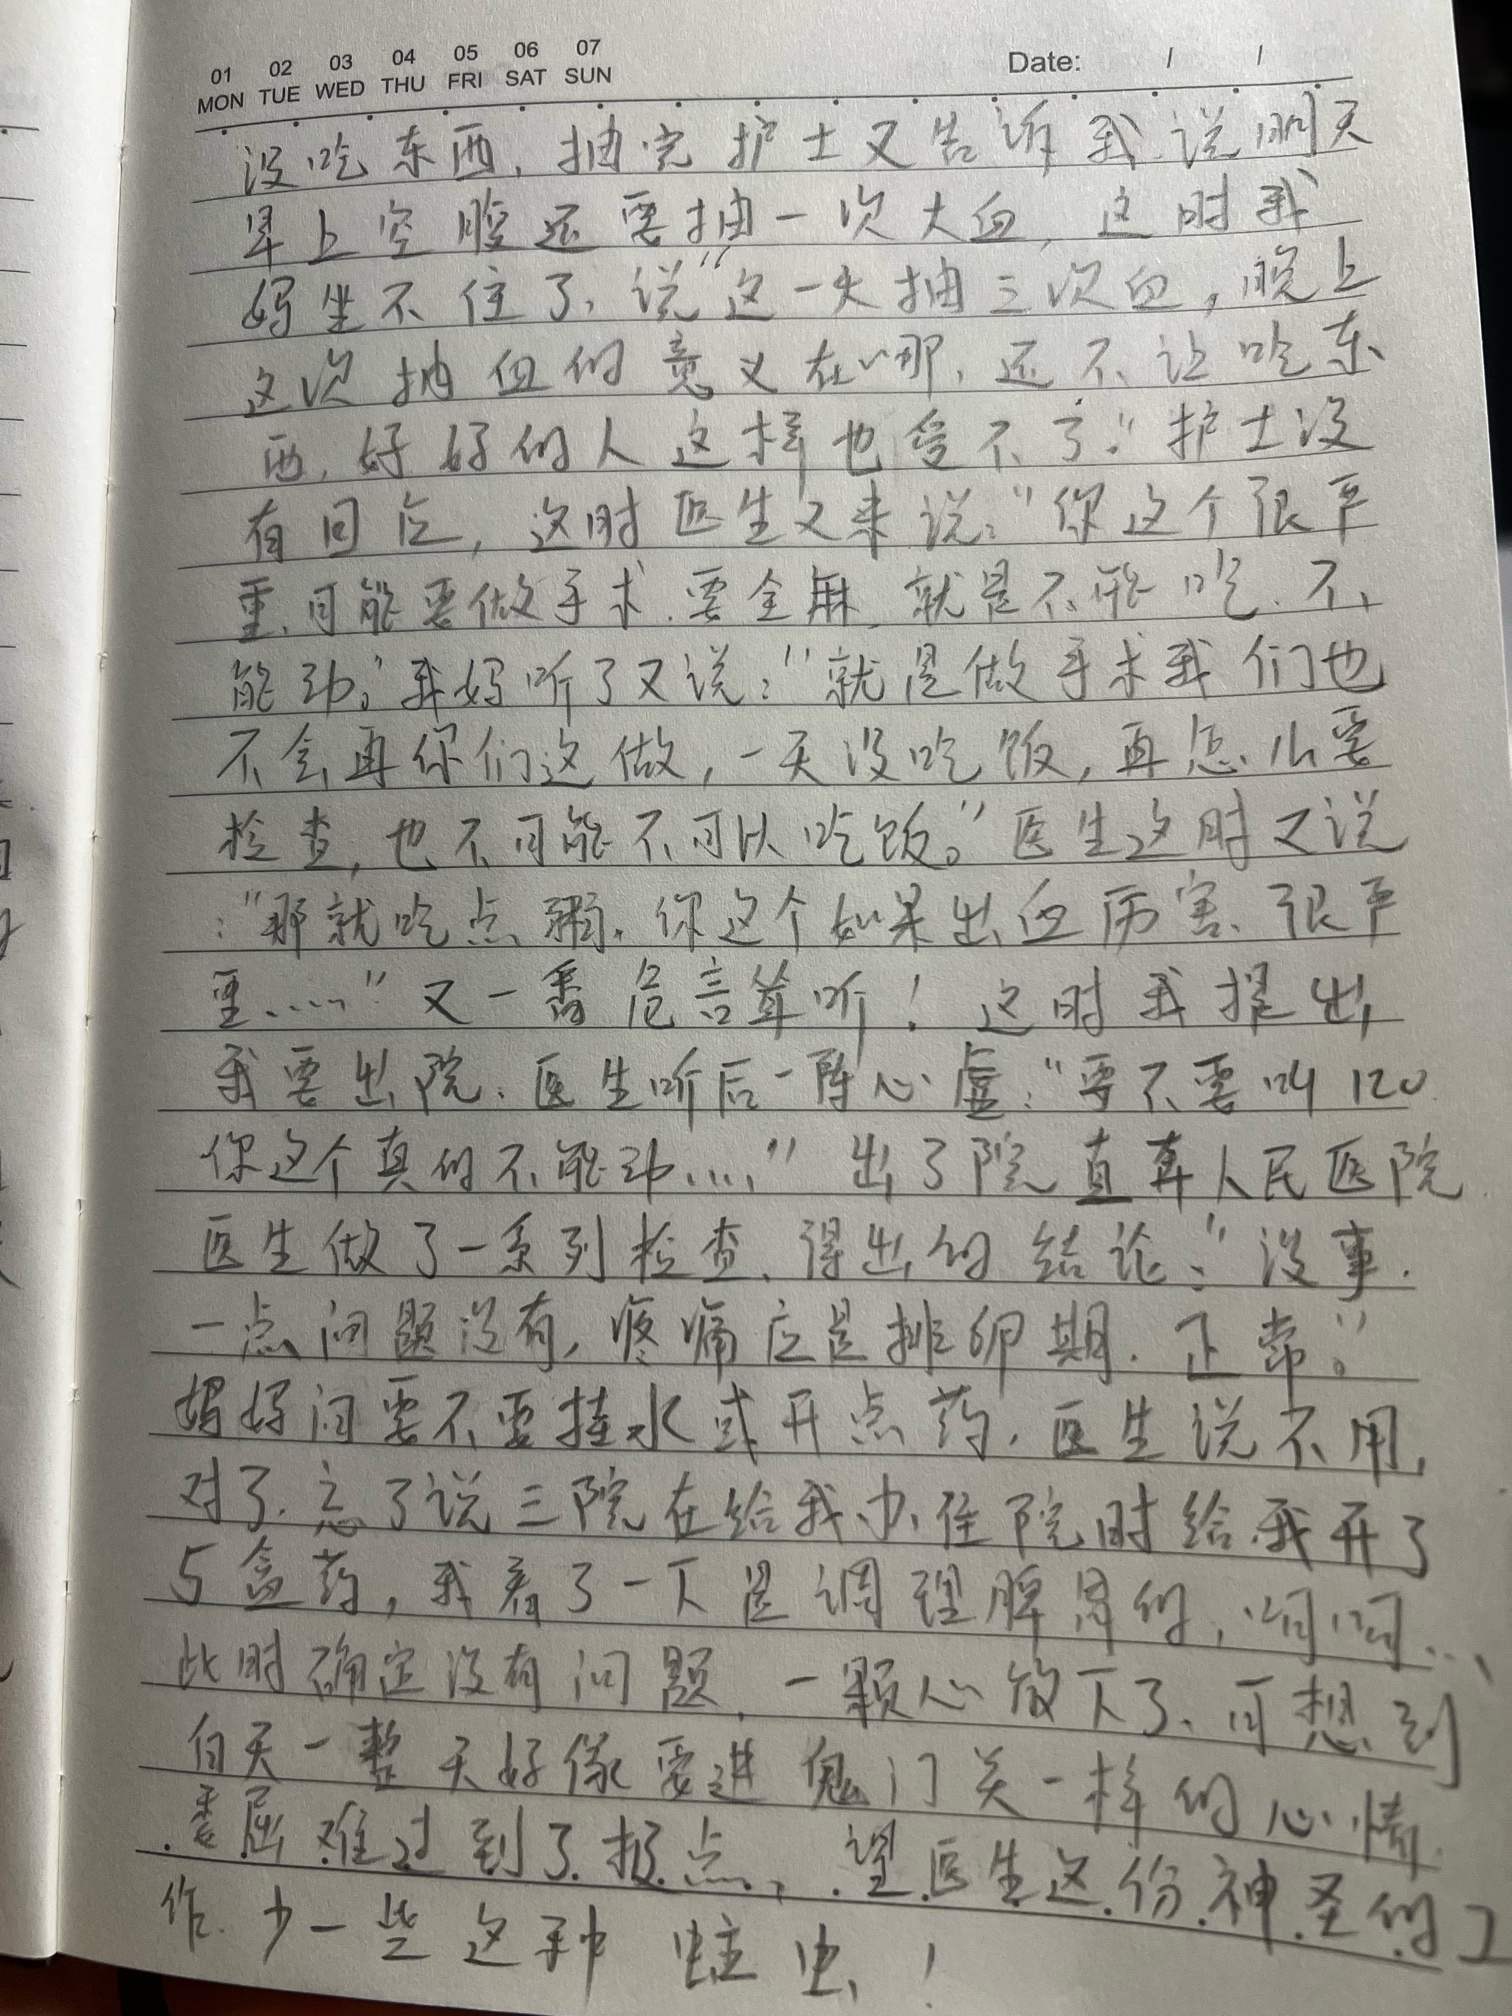 01 02 03 04 05 06 07
MON TUE WED THU FRI SAT SUN
Date: / /
没吃东西，抽完护士又告诉我说明天
早上空腹还要抽一次大血，这时我
妈坐不住了，说“这一天抽三次血，晚上
这次抽血的意义在哪，还不让吃东
西，好好的人这样也受不了。”护士没
有回应，这时医生又来说：“你这个很严
重，可能要做手术，要全麻，就是不能吃，不
能动。”我妈听了又说：“就是做手术我们也
不会再你们这做，一天没吃饭，再怎么要
检查，也不可能不可以吃饭。”医生这时又说
：“那就吃点粥，你这个如果出血厉害、很严
重……”又一番危言耸听！这时我提出
我要出院，医生听后一阵心虚：“要不要叫120
你这个真的不能动……”出了院直奔人民医院
医生做了一系列检查，得出的结论：“没事.
一点问题没有，疼痛应是排卵期.正常。”
妈妈问要不要挂水或开点药，医生说不用，
对了.忘了说三院在给我办住院时给我开了
5盒药，我看了一下是调理脾胃的，呵呵…
此时确定没有问题，一颗心放下了、可想到
白天一整天好像要进鬼门关一样的心情.
委屈难过到了极点，望医生这份神圣的工
作.少一些这种蛀虫！